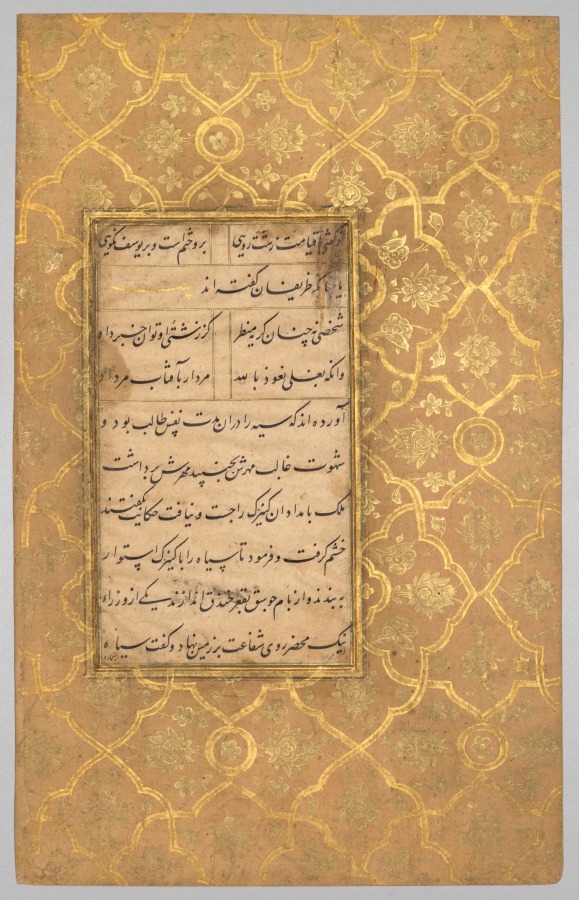 تو گویی تا قیامت زشت رویی بروختم است و بر یوسف نکویی
یا چنانکه ظریفان گفته اند
شخصی نه چنان کریه منظر کز زشتی او توان خبر داد
وانکه بغلی نعوذ بالله مردار بآفتاب مرداد
آورده اند که سیه را دران مدت نفس طالب بود و
شهوت غالب مهرش بجنبید مهرش برداشت
ملک بامدادان کنیزک را جست و نیافت حکایت بگفتند
خشم گرفت و فرمود تا سیاه را با کنیزک استوار
به بندند و از بام جوسق بقعر خندق اندازند یکی از وزراء
نیک محضر روی شفاعت بر زمین نهاد و گفت سیاه